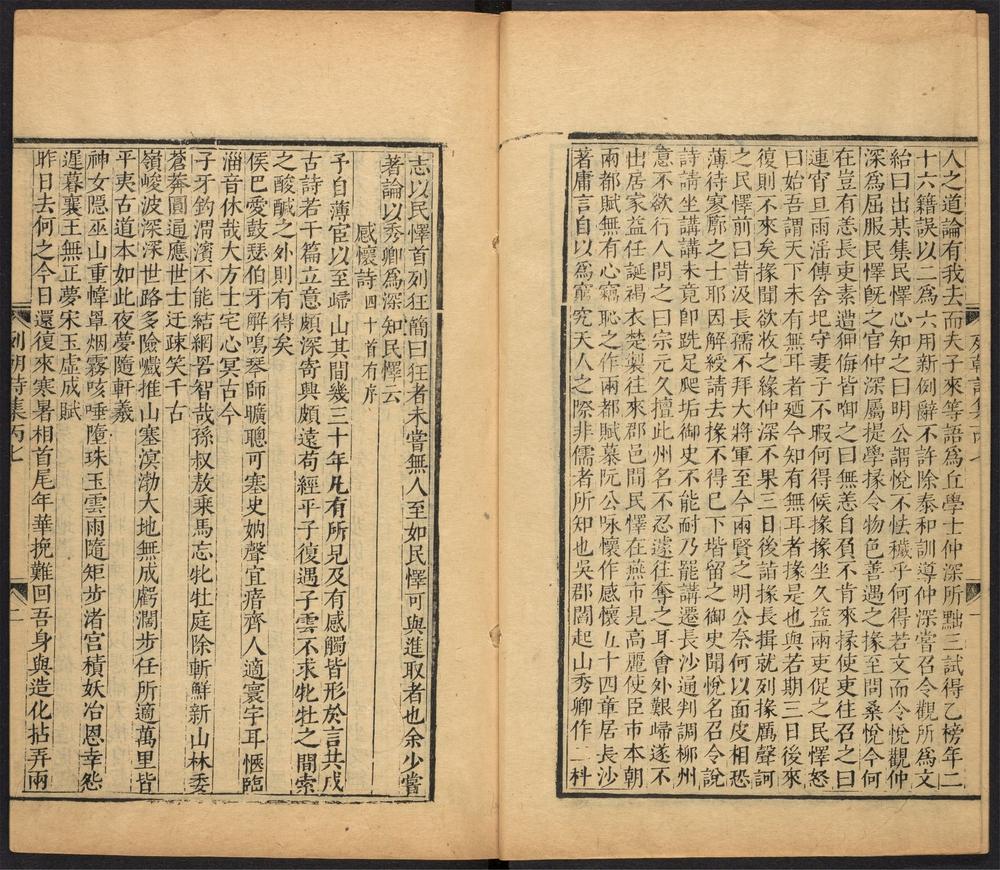 人之道論有我去而夫子來等語爲丘學士仲深所黜三試得乙榜年二
十六籍誤以二爲六用新例辭不許除泰和訓導仲深嘗召令觀所爲文
紿曰出某集民懌心知之曰明公謂悅不怯穢乎何得若文而令悅觀仲
深爲屈服民懌旣之官仲深屬提學掾令物色善遇之掾至問桑悅今何
在豈有恙長吏素遭㑄侮皆啣之曰無恙自負不肯來掾使吏往召之曰
連宵旦雨淫傳舍圯守妻子不暇何得候掾掾坐久益兩吏促之民懌怒
曰始吾謂天下未有無耳者廼今知有無耳者掾是也與若期三日後來
復則不來矣掾聞欲收之緣仲深不果三日後詣掾長揖就列掾厲聲訶
之民懌前曰昔汲長孺不拜大將軍至今兩賢之明公奈何以面皮相恐
薄待寥廓之士耶因解綬請去掾不得已下堦留之御史聞悅名召令說
詩請坐講講未竟卽跣足爬垢御史不能耐乃罷講遷長沙通判調柳州
意不欲行人問之曰宗元久擅此州名不忍遽往奪之耳會外艱歸遂不
出居家益任誕褐衣楚製往來郡邑間民懌在燕市見高麗使臣市本朝
兩都賦無有心竊恥之作兩都賦慕阮公咏懷作感懷五十四章居長沙
著庸言自以爲窮究天人之際非儒者所知也吳郡閻起山秀卿作二科
志以民懌首列狂簡曰狂者未嘗無人至如民懌可與進取者也余少嘗
著論以秀卿爲深知民懌云
感懷詩四十首有序
予自薄宦以至歸山其間幾三十年凡有所見及有感觸皆形於言共成
古詩若干篇立意頗深寄興頗遠苟經平子復遇子雲不求牝牡之間索
之酸醎之外則有得矣
侯巴愛鼓瑟伯牙解鳴琴師曠聰可塞史妠聲宜瘖齊人適寰宇耳愜臨
淄音休哉大方士宅心冥古今
子牙釣渭濱不能結網罟智哉孫叔敖乘馬忘牝牡庭除斬鮮新山林委
蒼莽圓通應世士迂疎笑千古
嶺峻波深深世路多險巇推山塞溟渤大地無成虧濶步任所適萬里皆
平夷古道本如此夜夢隨軒羲
神女隠巫山重幃罩烟霧咳唾墮珠玉雲雨隨矩步渚宮積妖冶恩幸怨
遲暮襄王無正夢宋玉虛成賦
昨日去何之今日還復來寒暑相首尾年華挽難回吾身與造化拈弄兩
列朝詩集丙七
二